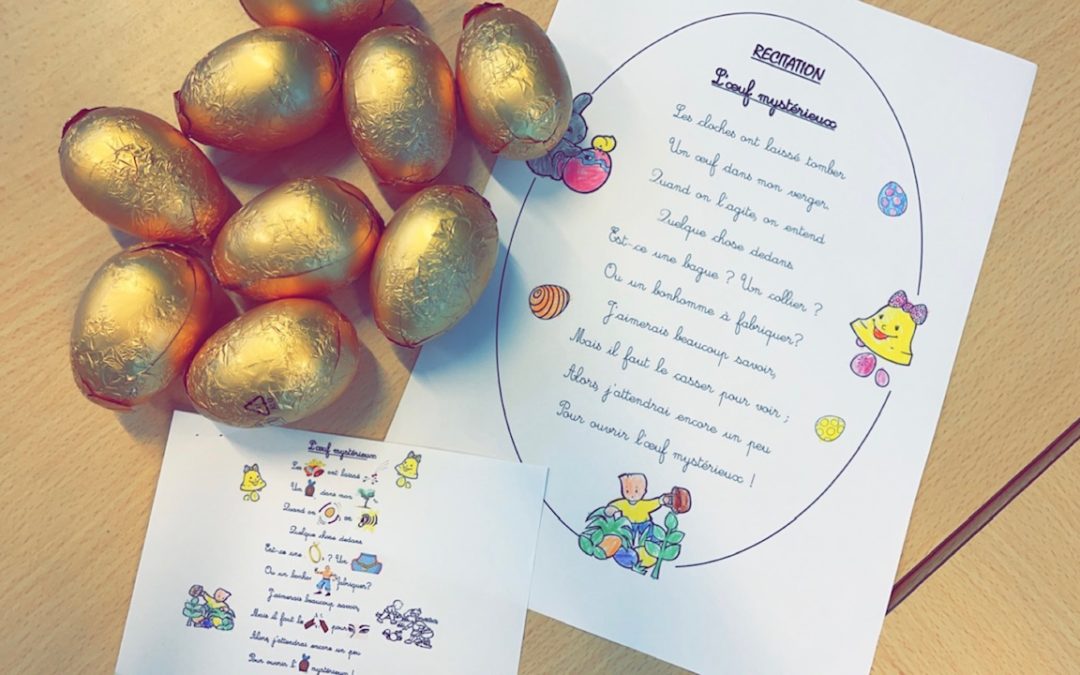 RECITATION
L'œuf mystérieux
Les cloches ont laissé tomber
Un œuf dans mon verger.
Quand on l'agite, on entend
Quelque chose dedans
Est-ce une bague ? Un collier ?
Ou un bonhomme à fabriquer?
J'aimerais beaucoup savoir,
Mais il faut le casser pour voir ;
Alors, j'attendrai encore un peu
Pour ouvrir l'œuf mystérieux !
L'œuf mystérieux
Les ont laissé
Un dans mon
Quand on , on
Quelque chose dedans
Est-ce une ? Un
Ou un bonhom fabriquer?
J'aimerais beaucoup savoir,
Mais il faut le pour
Alors, j'attendrai encore un peu
Pour ouvrir l' mystérieux !